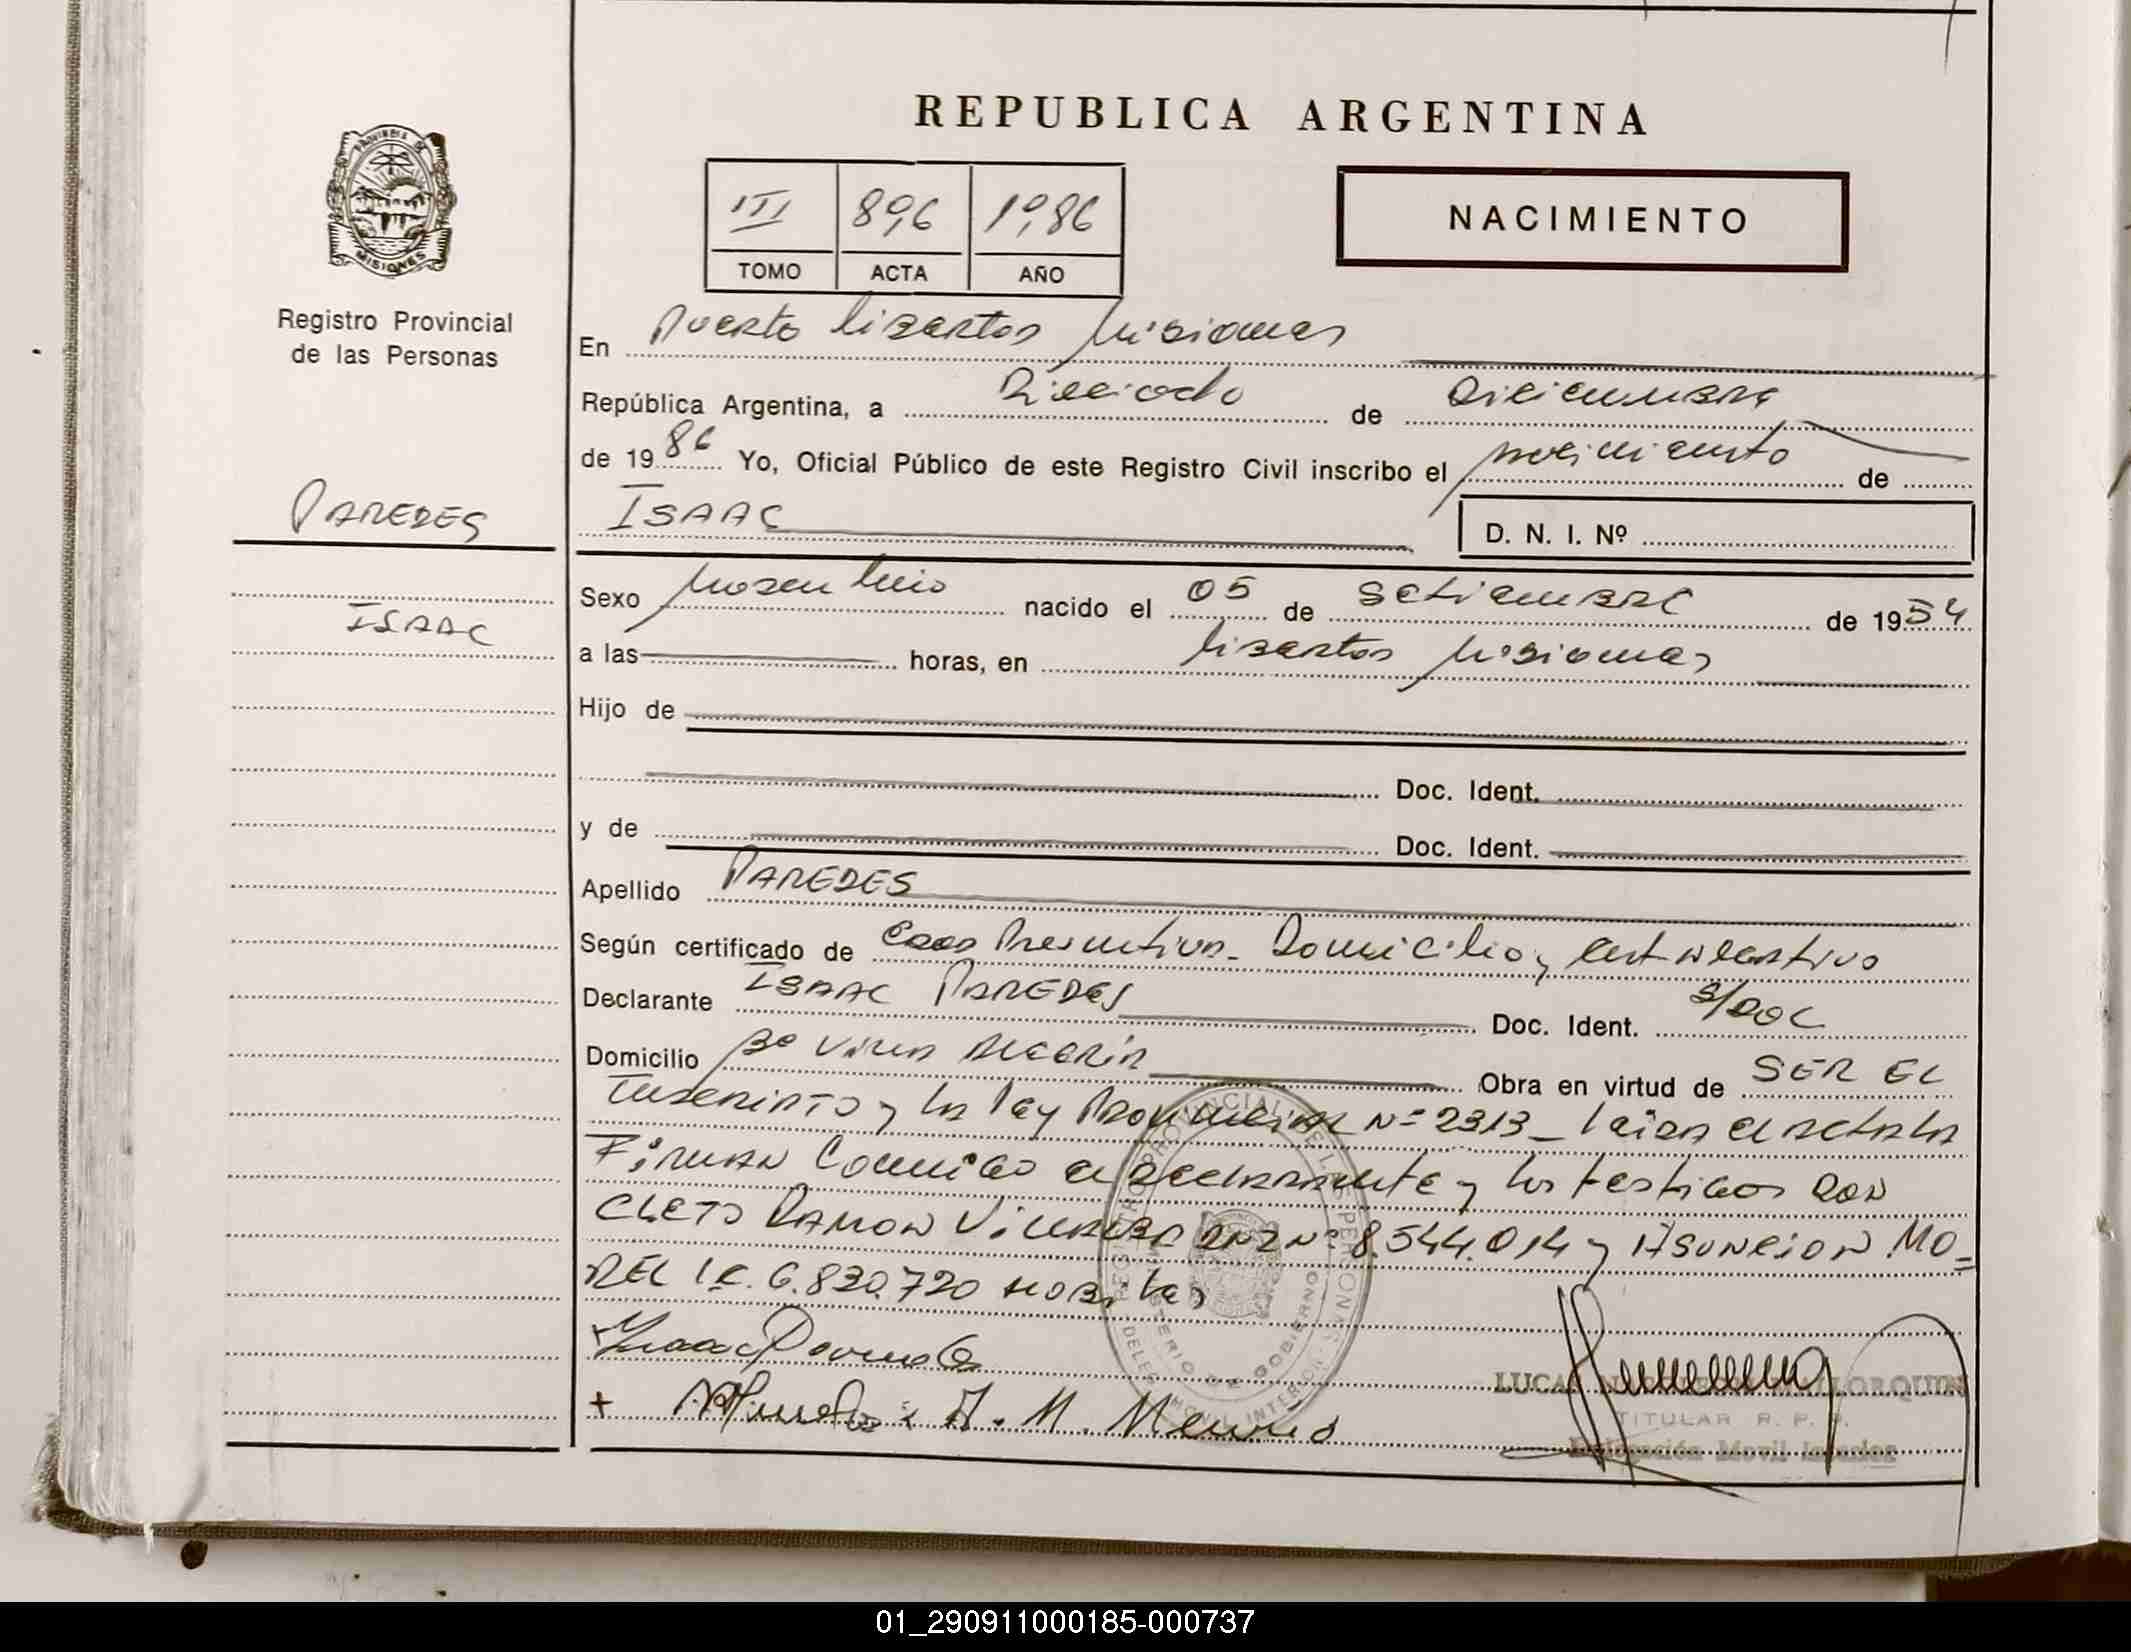 REPUBLICA ARGENTINA
PROVINCIA DE
MISIONES
Registro Provincial
de las Personas
III 896 1986
TOMO ACTA AÑO
NACIMIENTO
En Puerto Libertad Misiones
República Argentina, a Dieciocho de Diciembre
de 1986 Yo, Oficial Público de este Registro Civil inscribo el nacimiento de
PAREDES
ISAAC
D. N. I. Nº
ISAAC
Sexo Masculino nacido el 05 de Setiembre de 1954
a las horas, en Libertad Misiones
Hijo de
Doc. Ident.
y de Doc. Ident.
Apellido PAREDES
Según certificado de Edad Presuntiva - Domicilio y Cert. Negativo
Declarante ISAAC PAREDES Doc. Ident. S/DOC
Domicilio Bº Villa Alegria Obra en virtud de SER EL
Inscripto y la Ley Provincial Nº 2313 - Leida el acta la
Firman Conmigo el declarante y los testigos Don
CLETO RAMON Villalba DNI Nº 8.544.014 y ASUNCION MO-
DEL I.C. 6.830.720 Habiles
REGISTRO PROVINCIAL DE LAS PERSONAS
MINISTERIO DE GOBIERNO
DELEG. MOVIL INTERIOR
LUCAS LORQUIN
TITULAR R. P. P.
Delegación Movil Interior
01_290911000185-000737